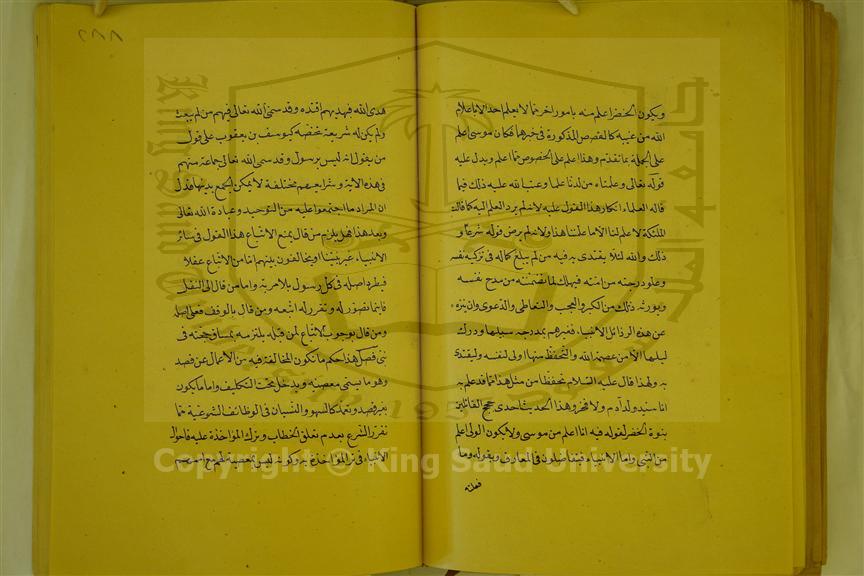 ويكون الخضر اعلم منه بامور اخر مما لا يعلم احد الا باعلام
الله من غيبه كالقصص المذكورة في خبرهما فكان موسى اعلم
على الجملة بما تقدم وهذا اعلم على الخصوص بما اعلم ويدل عليه
قوله تعالى وعلمناه من لدنا علما وعتب الله عليه ذلك فيما
قاله العلماء انكار هذا القول عليه لانه لم يرد العلم اليه كما قالت
الملئكة لا علم لنا الا ما علمتنا او لانه لم يرض قوله شرعا و
ذلك والله لئلا يقتدى به فيه من لم يبلغ كماله في تزكية نفسه
وعلو درجته من امته فيهلك لما تضمنه من مدح نفسه
ويورثه ذلك من الكبر والعجب والتعاطى والدعوى وان نزه
عن هذه الرذائل الانبياء فغيرهم بمدرجة سبيلها ودرك
ليلها الا من عصمه الله والتحفظ منها اولى لنفسه وليقتدى
به ولهذا قال عليه السلام تحفظا من مثل هذا مما قد علم به
انا سيد ولد آدم ولا فخر وهذا الحديث احدى حجج القائلين
بنبوة الخضر لقوله فيه انا اعلم من موسى ولا يكون الولى اعلم
من النبي واما الانبياء فيتفاضلون في المعارف وبقوله وما
فعلته
٢٨٨
هدى الله فبهديهم اقتده وقد سمى الله تعالى فيهم من لم يبعث
ولم يكن له شريعة تخصه كيوسف بن يعقوب على قول
من يقول انه ليس برسول وقد سمى الله تعالى جماعة منهم
في هذه الاية وشرايعهم مختلفة لا يمكن الجمع بينها فدل
ان المراد ما اجتمعوا عليه من التوحيد وعبادة الله تعالى
وبعد هذا هل يلزم من قال بمنع الاتباع هذا القول في سائر
الانبياء غير نبينا او يخالفون بينهم اما من منع الاتباع عقلا
فيطرد اصله في كل رسول بلا مرية واما من قال الى النقل
فاينما تصور له وتقرر له اتبعه ومن قال بالوقف فعلى اصله
ومن قال بوجوب الاتباع لمن قبله يلتزمه بمساق حجته في
نبي فصل هذا حكم ما تكون المخالفة فيه من الاعمال عن قصد
وهو ما يسمى معصية ويدخل تحت التكليف واما ما يكون
بغير قصد وتعمد كالسهو والنسيان في الوظائف الشرعية مما
تقرر الشرع بعدم تعلق الخطاب وترك المؤاخذة عليه فاحوال
الانبياء في ترك المؤاخذة به وكونه ليس بمعصية لهم مع اممهم
Copyright © King Saud University